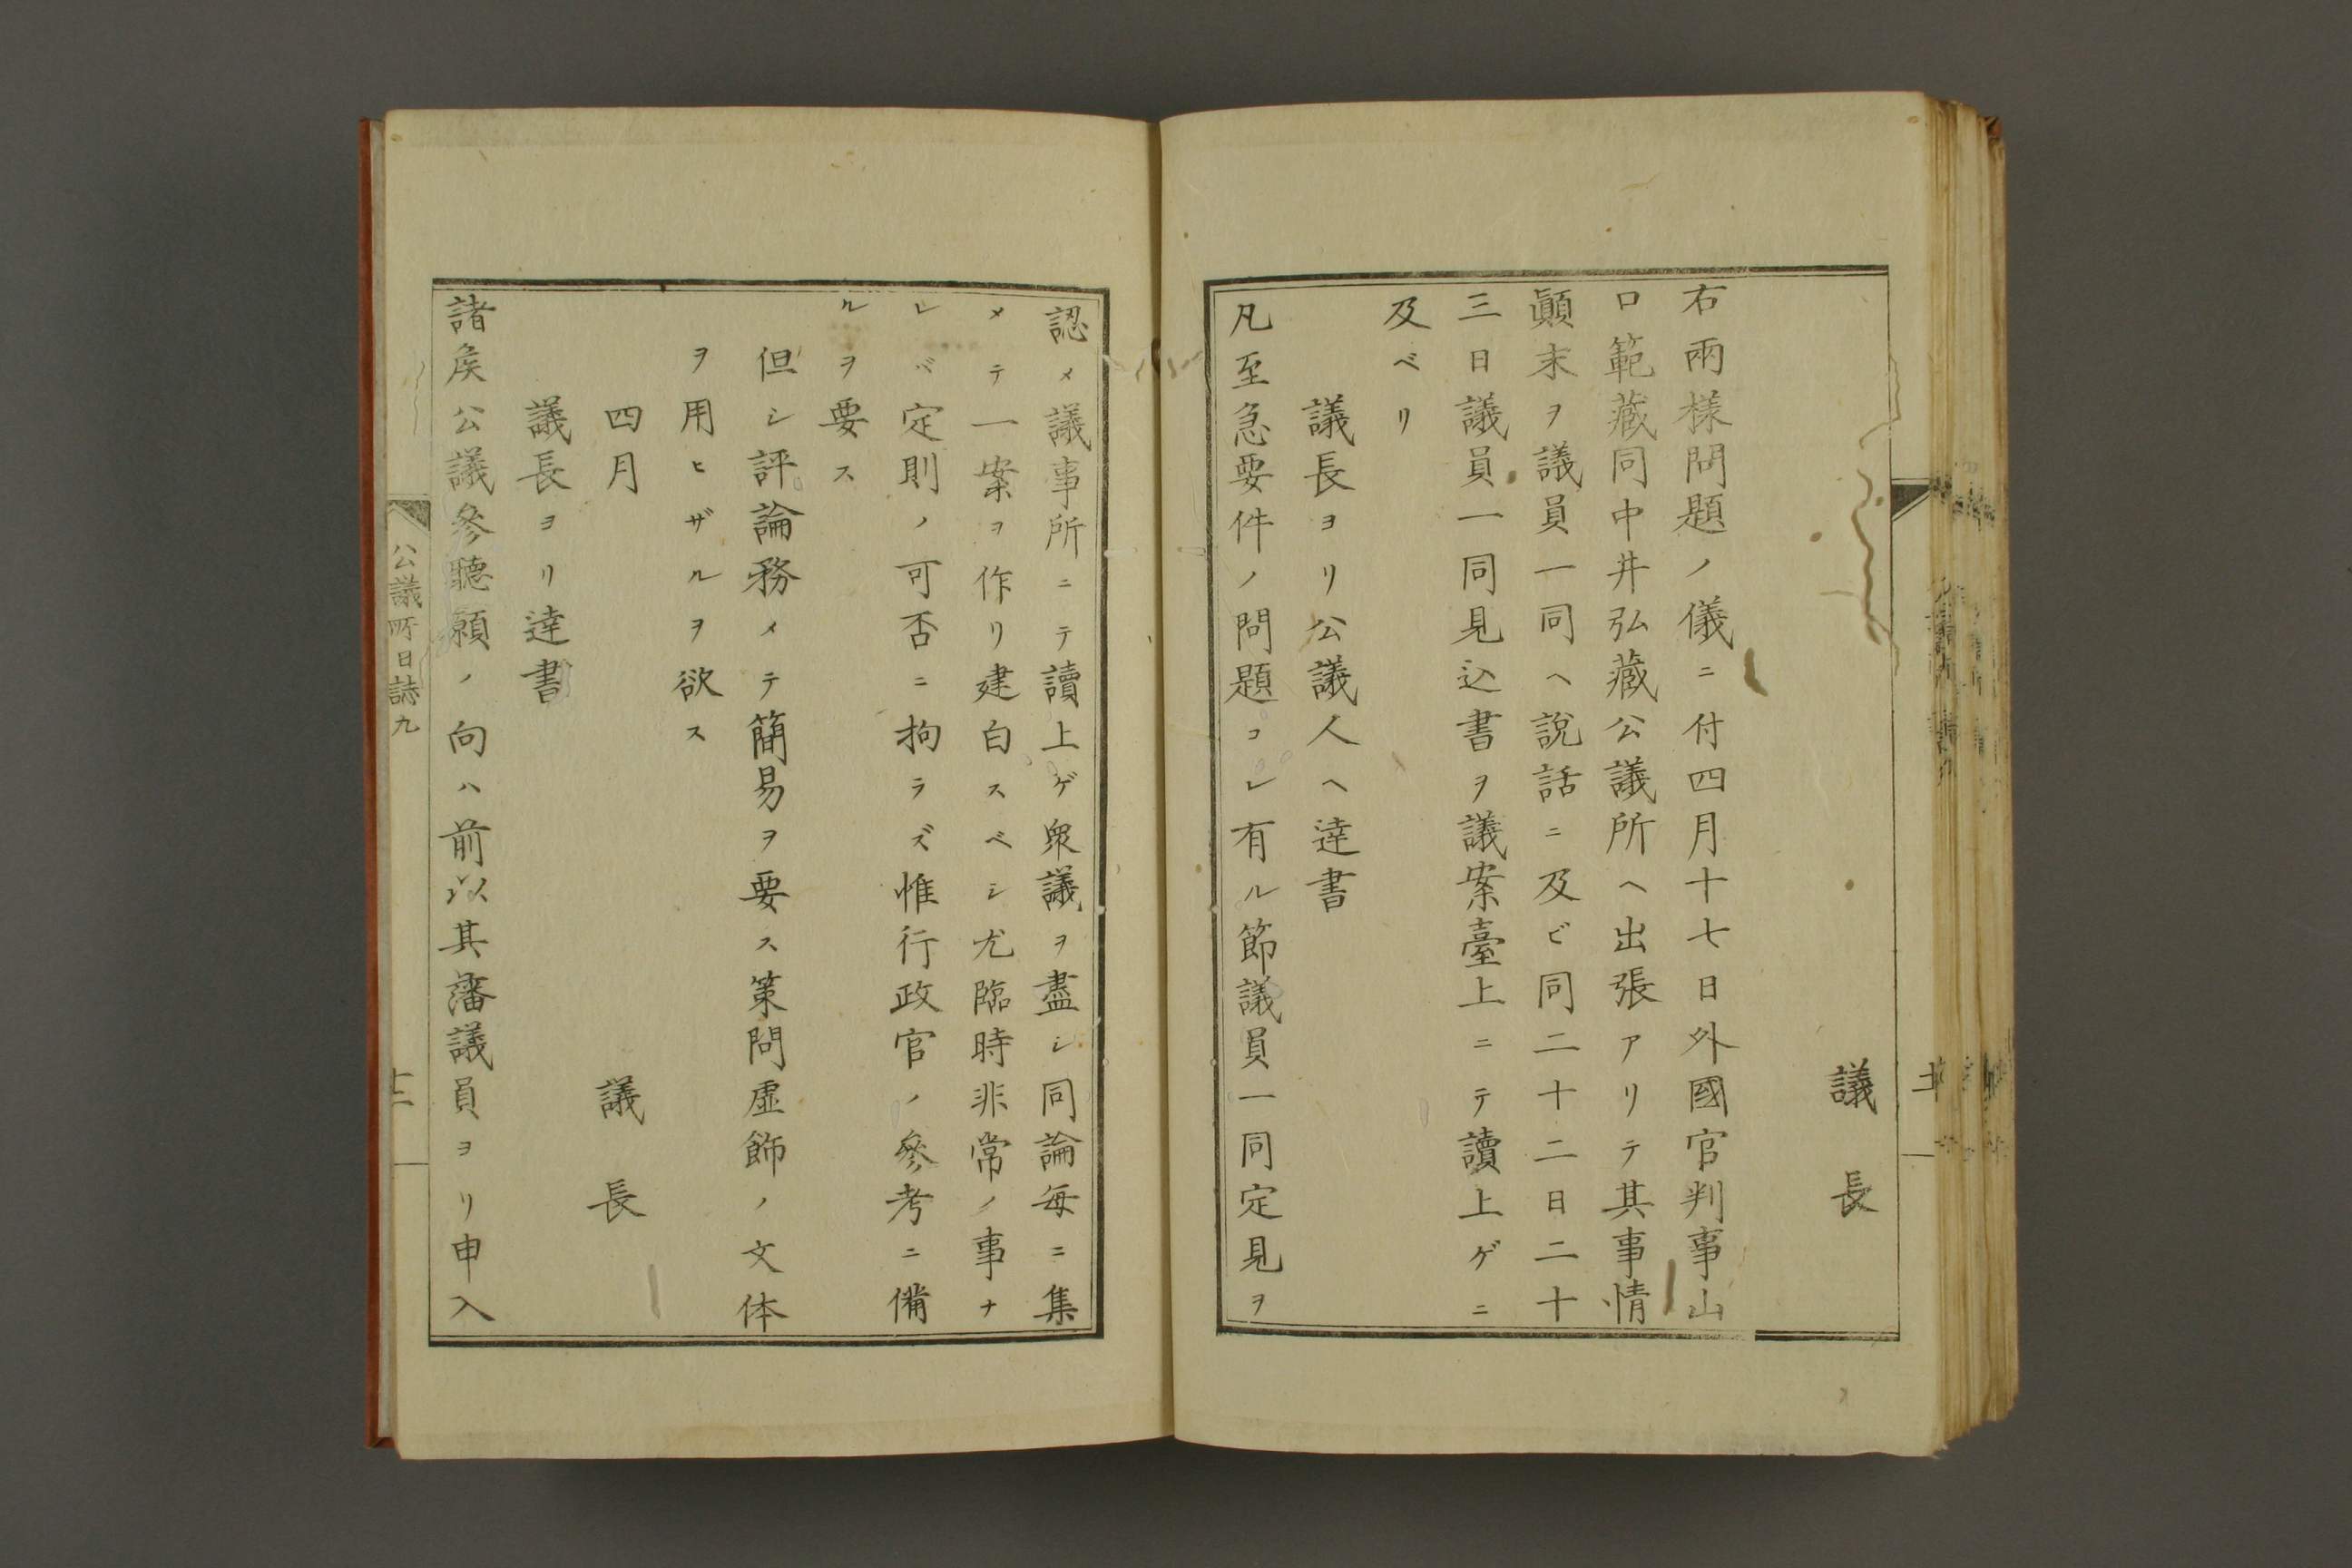 議長
右兩樣問題ノ儀ニ付四月十七日外國官判事山
口範藏同中井弘藏公議所ヘ出張アリテ其事情
顚末ヲ議員一同ヘ說話ニ及ビ同二十二日二十
三日議員一同見込書ヲ議案臺上ニテ讀上ゲニ
及ベリ
議長ヨリ公議人ヘ達書
凡至急要件ノ問題コレ有ル節議員一同定見ヲ
認メ議事所ニテ讀上ゲ衆議ヲ盡シ同論每ニ集
メテ一案ヲ作リ建白スベシ尤臨時非常ノ事ナ
レバ定則ノ可否ニ拘ラズ惟行政官ノ參考ニ備
ルヲ要ス
但シ評論務メテ簡易ヲ要ス策問虛飾ノ文体
ヲ用ヒザルヲ欲ス
四月
議長
議長ヨリ達書
諸矦公議參聽願ノ向ハ前以其藩議員ヨリ申入
公議所日誌九
十二